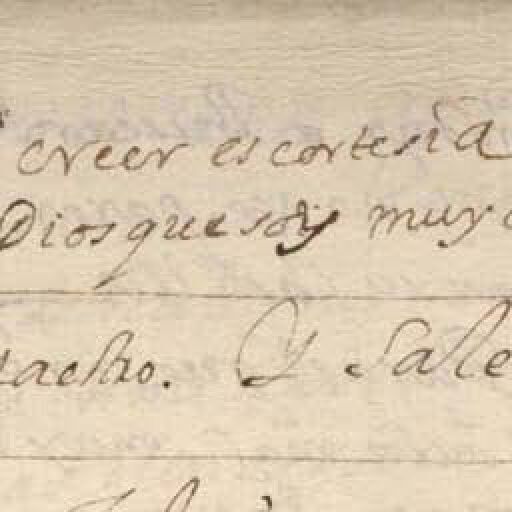 creer es cortesia
Dios que soy muy
tacho. Y Sale